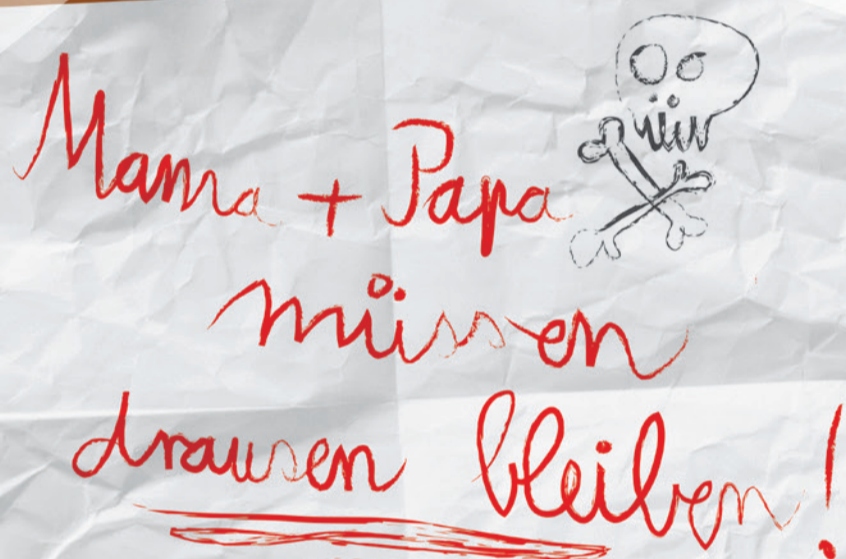 Mama + Papa
müssen
drausen bleiben!